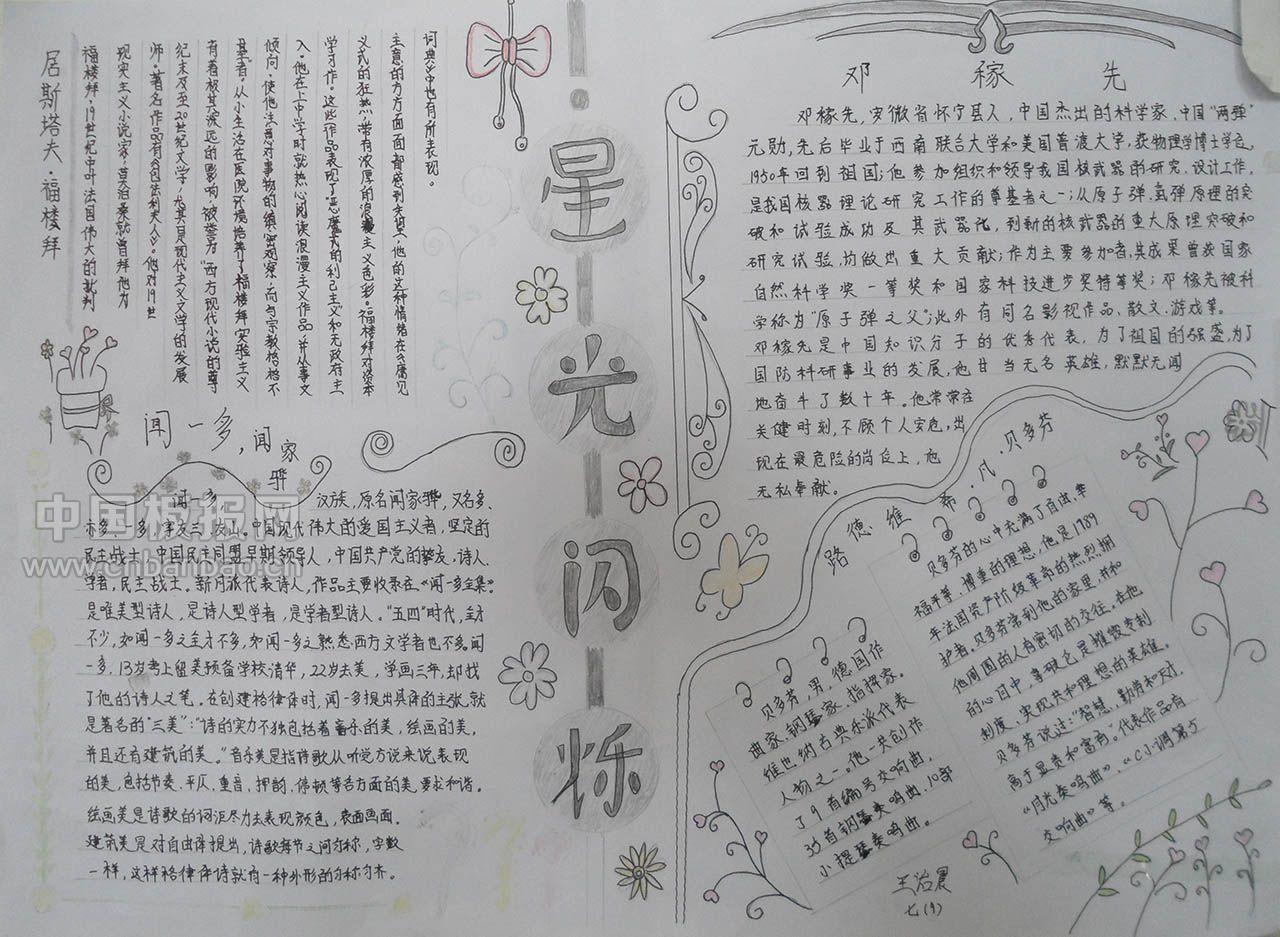 星光闪烁
居斯塔夫·福楼拜
福楼拜,19世纪中叶法国伟大的批判
现实主义小说家,莫泊桑就曾拜他为
师。著名作品有《包法利夫人》。他对19世
纪末及至20世纪文学,尤其是现代主义文学的发展
有着极其深远的影响,被誉为“西方现代小说的尊
基者”。从小生活在医院环境培养了福楼拜实验主义
倾向,使他注意对事物的缜密观察,而与宗教格格不
入。他在上中学时就热心阅读浪漫主义作品,并从事文
学习作。这些作品表现了恶魔式的利己主义和无政府主
义式的狂热,带有浓厚的浪漫主义色彩。福楼拜对资本
主意的方方面面都感到失望,他的这种情绪在《庸见
词典》中也有所表现。
闻一多,闻家骅
闻一多 汉族,原名闻家骅,又名多、
亦多、一多,字友三、友山。中国现代伟大的爱国主义者,坚定的
民主战士,中国民主同盟早期领导人,中国共产党的挚友,诗人、
学者,民主战士。新月派代表诗人,作品主要收录在《闻一多全集》
是唯美型诗人,是诗人型学者,是学者型诗人。“五四”时代,全才
不少,如闻一多之全才不多,如闻一多之熟悉西方文学者也不多。闻
一多,13岁考上留美预备学校清华,22岁去美,学画三年,却找
了他的诗人之笔。在创建格律体时,闻一多提出具体的主张,就
是著名的“三美”:“诗的实力不独包括着音乐的美,绘画的美,
并且还有建筑的美。”音乐美是指诗歌从听觉方说来说表现
的美,包括节奏、平仄、重音、押韵、停顿等各方面的美,要求和谐。
绘画美是诗歌的词汇尽力去表现颜色,表面画面。
建筑美是对自由体提出,诗歌每节之间匀称,字数
一样,这样格律体诗就有一种外形的匀称匀齐。
邓稼先
邓稼先,安徽省怀宁县人,中国杰出的科学家,中国“两弹”
元勋,先后毕业于西南联合大学和美国普渡大学,获物理学博士学位。
1950年回到祖国;他参加组织和领导我国核武器的研究、设计工作,
是我国核器理论研究工作的尊基者之一;从原子弹、氢弹原理的突
破和试验成功及其武器化,到新的核武器的重大原理突破和
研究试验,均做出重大贡献;作为主要参加者,其成果曾获国家
自然科学奖一等奖和国家科技进步奖特等奖;邓稼先被科
学称为“原子弹之父”;此外有同名影视作品、散文、游戏等。
邓稼先是中国知识分子的优秀代表,为了祖国的强盛,为了
国防科研事业的发展,他甘当无名英雄,默默无闻
地奋斗了数十年。他常常在
关键时刻,不顾个人安危,出
现在最危险的岗位上,他
无私奉献。
路德维希·凡·贝多芬
贝多芬,男,德国作
曲家、钢琴家、指挥家。
维也纳古典乐派代表
人物之一。他一共创作
了9首编号交响曲、
35首钢琴奏鸣曲、10部
小提琴奏鸣曲。
贝多芬的心中充满了自由、幸
福平等、博重的理想,他是1989
年法国资产阶级革命的热烈拥
护者。贝多芬常到他的家里,并和
他周围的人有密切的交往。在他
的心目中,拿破仑是摧毁专制
制度、实现共和理想的英雄。
贝多芬说过:“智慧,勤劳和天才,
高于显贵和富商。”代表作品有
“月光奏鸣曲”、“C小调第5
交响曲”等。
王治晨
七(9)
中国板报网
www.cnbanbao.cn